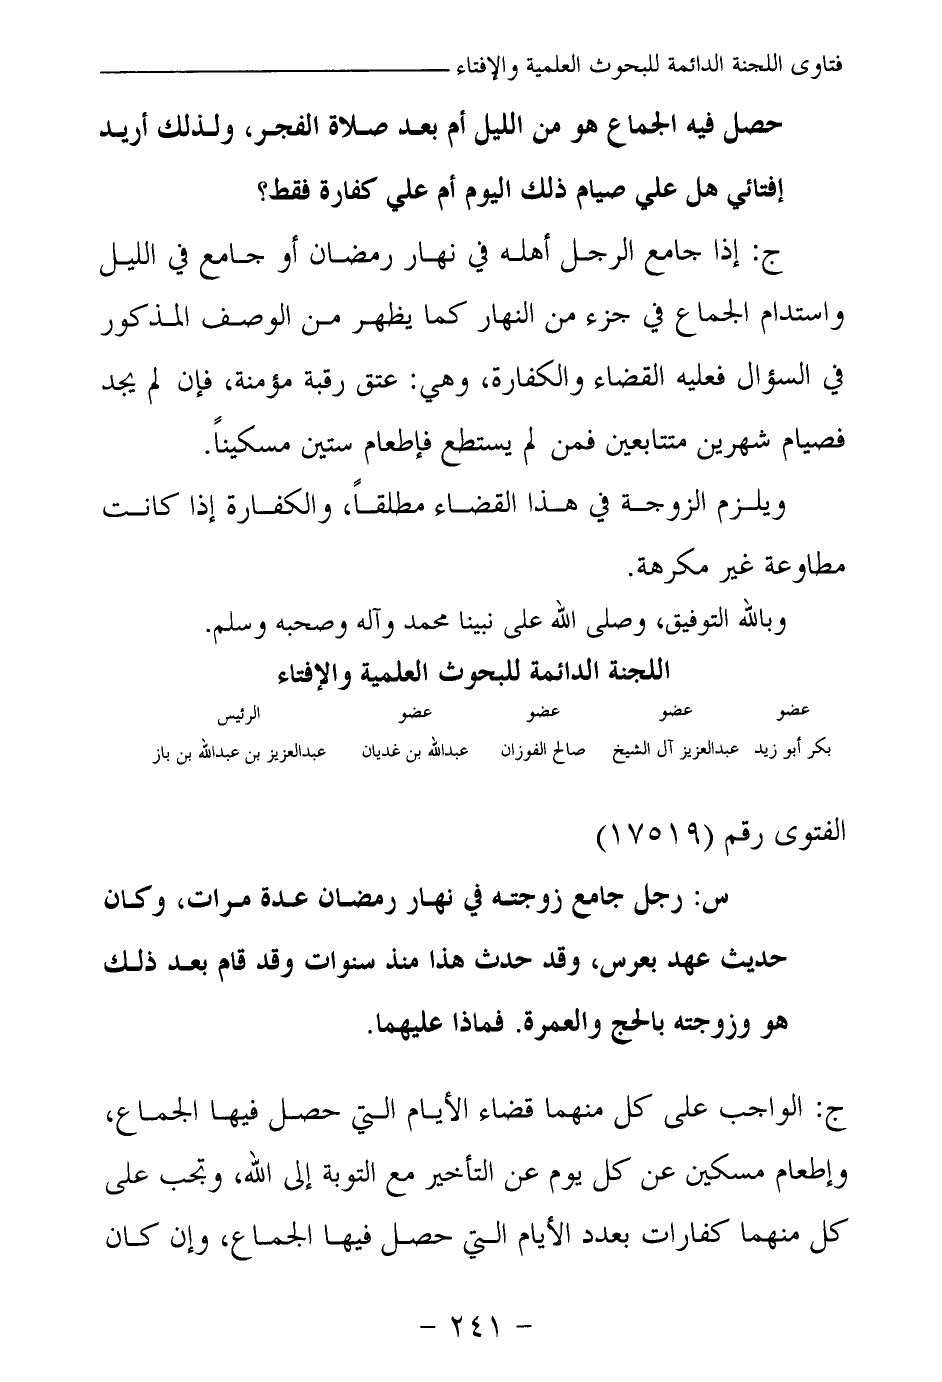 فتاوى اللجنة الدائمة للبحوث العلمية والإفتاء
حصل فيه الجماع هو من الليل أم بعد صلاة الفجر، ولذلك أريد
إفتائي هل علي صيام ذلك اليوم أم علي كفارة فقط؟
ج: إذا جامع الرجل أهله في نهار رمضان أو جامع في الليل
واستدام الجماع في جزء من النهار كما يظهر من الوصف المذكور
في السؤال فعليه القضاء والكفارة، وهي: عتق رقبة مؤمنة، فإن لم يجد
فصيام شهرين متتابعين فمن لم يستطع فإطعام ستين مسكيناً.
ويلزم الزوجة في هذا القضاء مطلقاً، والكفارة إذا كانت
مطاوعة غير مكرهة.
وبالله التوفيق، وصلى الله على نبينا محمد وآله وصحبه وسلم.
اللجنة الدائمة للبحوث العلمية والإفتاء
عضو عضو عضو عضو الرئيس
بكر أبو زيد عبدالعزيز آل الشيخ صالح الفوزان عبدالله بن غديان عبدالعزيز بن عبدالله بن باز
الفتوى رقم (١٧٥١٩)
س: رجل جامع زوجته في نهار رمضان عدة مرات، وكان
حديث عهد بعرس، وقد حدث هذا منذ سنوات وقد قام بعد ذلك
هو وزوجته بالحج والعمرة. فماذا عليهما.
ج: الواجب على كل منهما قضاء الأيام التي حصل فيها الجماع،
وإطعام مسكين عن كل يوم عن التأخير مع التوبة إلى الله، وتجب على
كل منهما كفارات بعدد الأيام التي حصل فيها الجماع، وإن كان
- ٢٤١ -